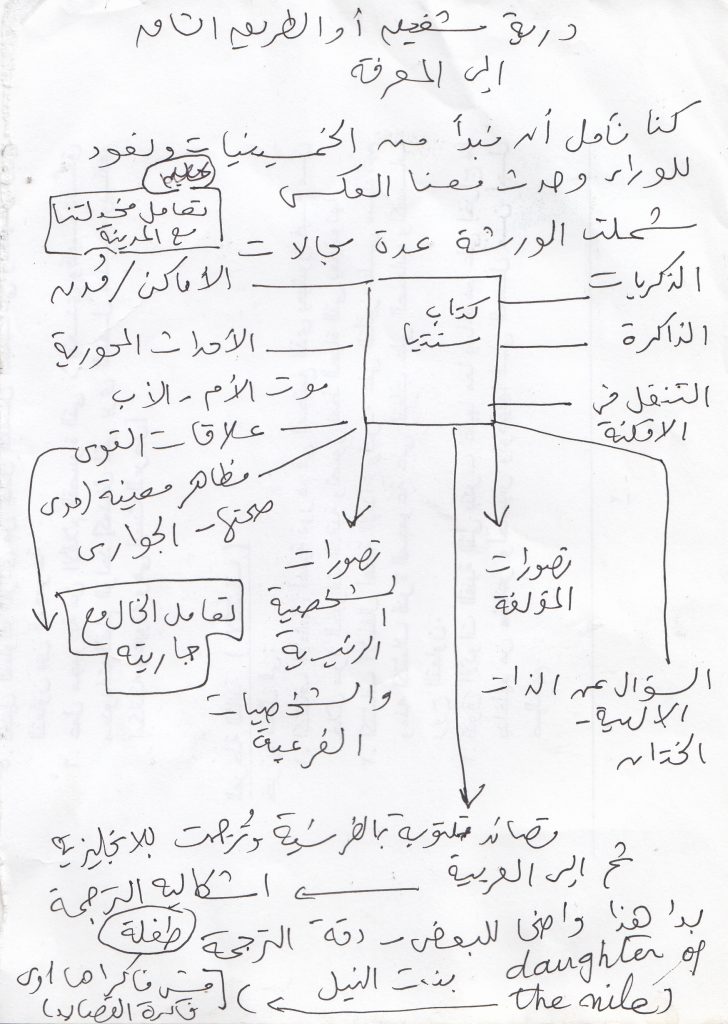 درية شفيق أو الطريق الشاق
إلى المعرفة
كنا نأمل أن نبدأ من الخمسينيات ونعود
للوراء وحدث معنا العكس
تعامل
مع المدينة
شملت الورشة عدة مجالات
الذكريات
الذاكرة
التنقل في
الأمكنة
كتاب
سنتيا
الأماكن / مُدن
الأحداث المحورية
موت الأم - الأب
علاقات القوى
مظاهر معينة (مدى
صحتها - الجوارى
تعامل الخال مع
جاريته
تصورات
الشخصية
الرئيسية
والشخصيات
الفرعية
تصورات
المؤلفة
السؤال عن الذات
الختان
قصائد مكتوبة بالفرنسية وتُرجمت للانجليزية
ثم إلى العربية
اشكالية الترجمة
بدا هذا واضحا للبعض - دقة الترجمة طفلة
daughter of
the nile)
بنت النيل
مش فاكراها اوى